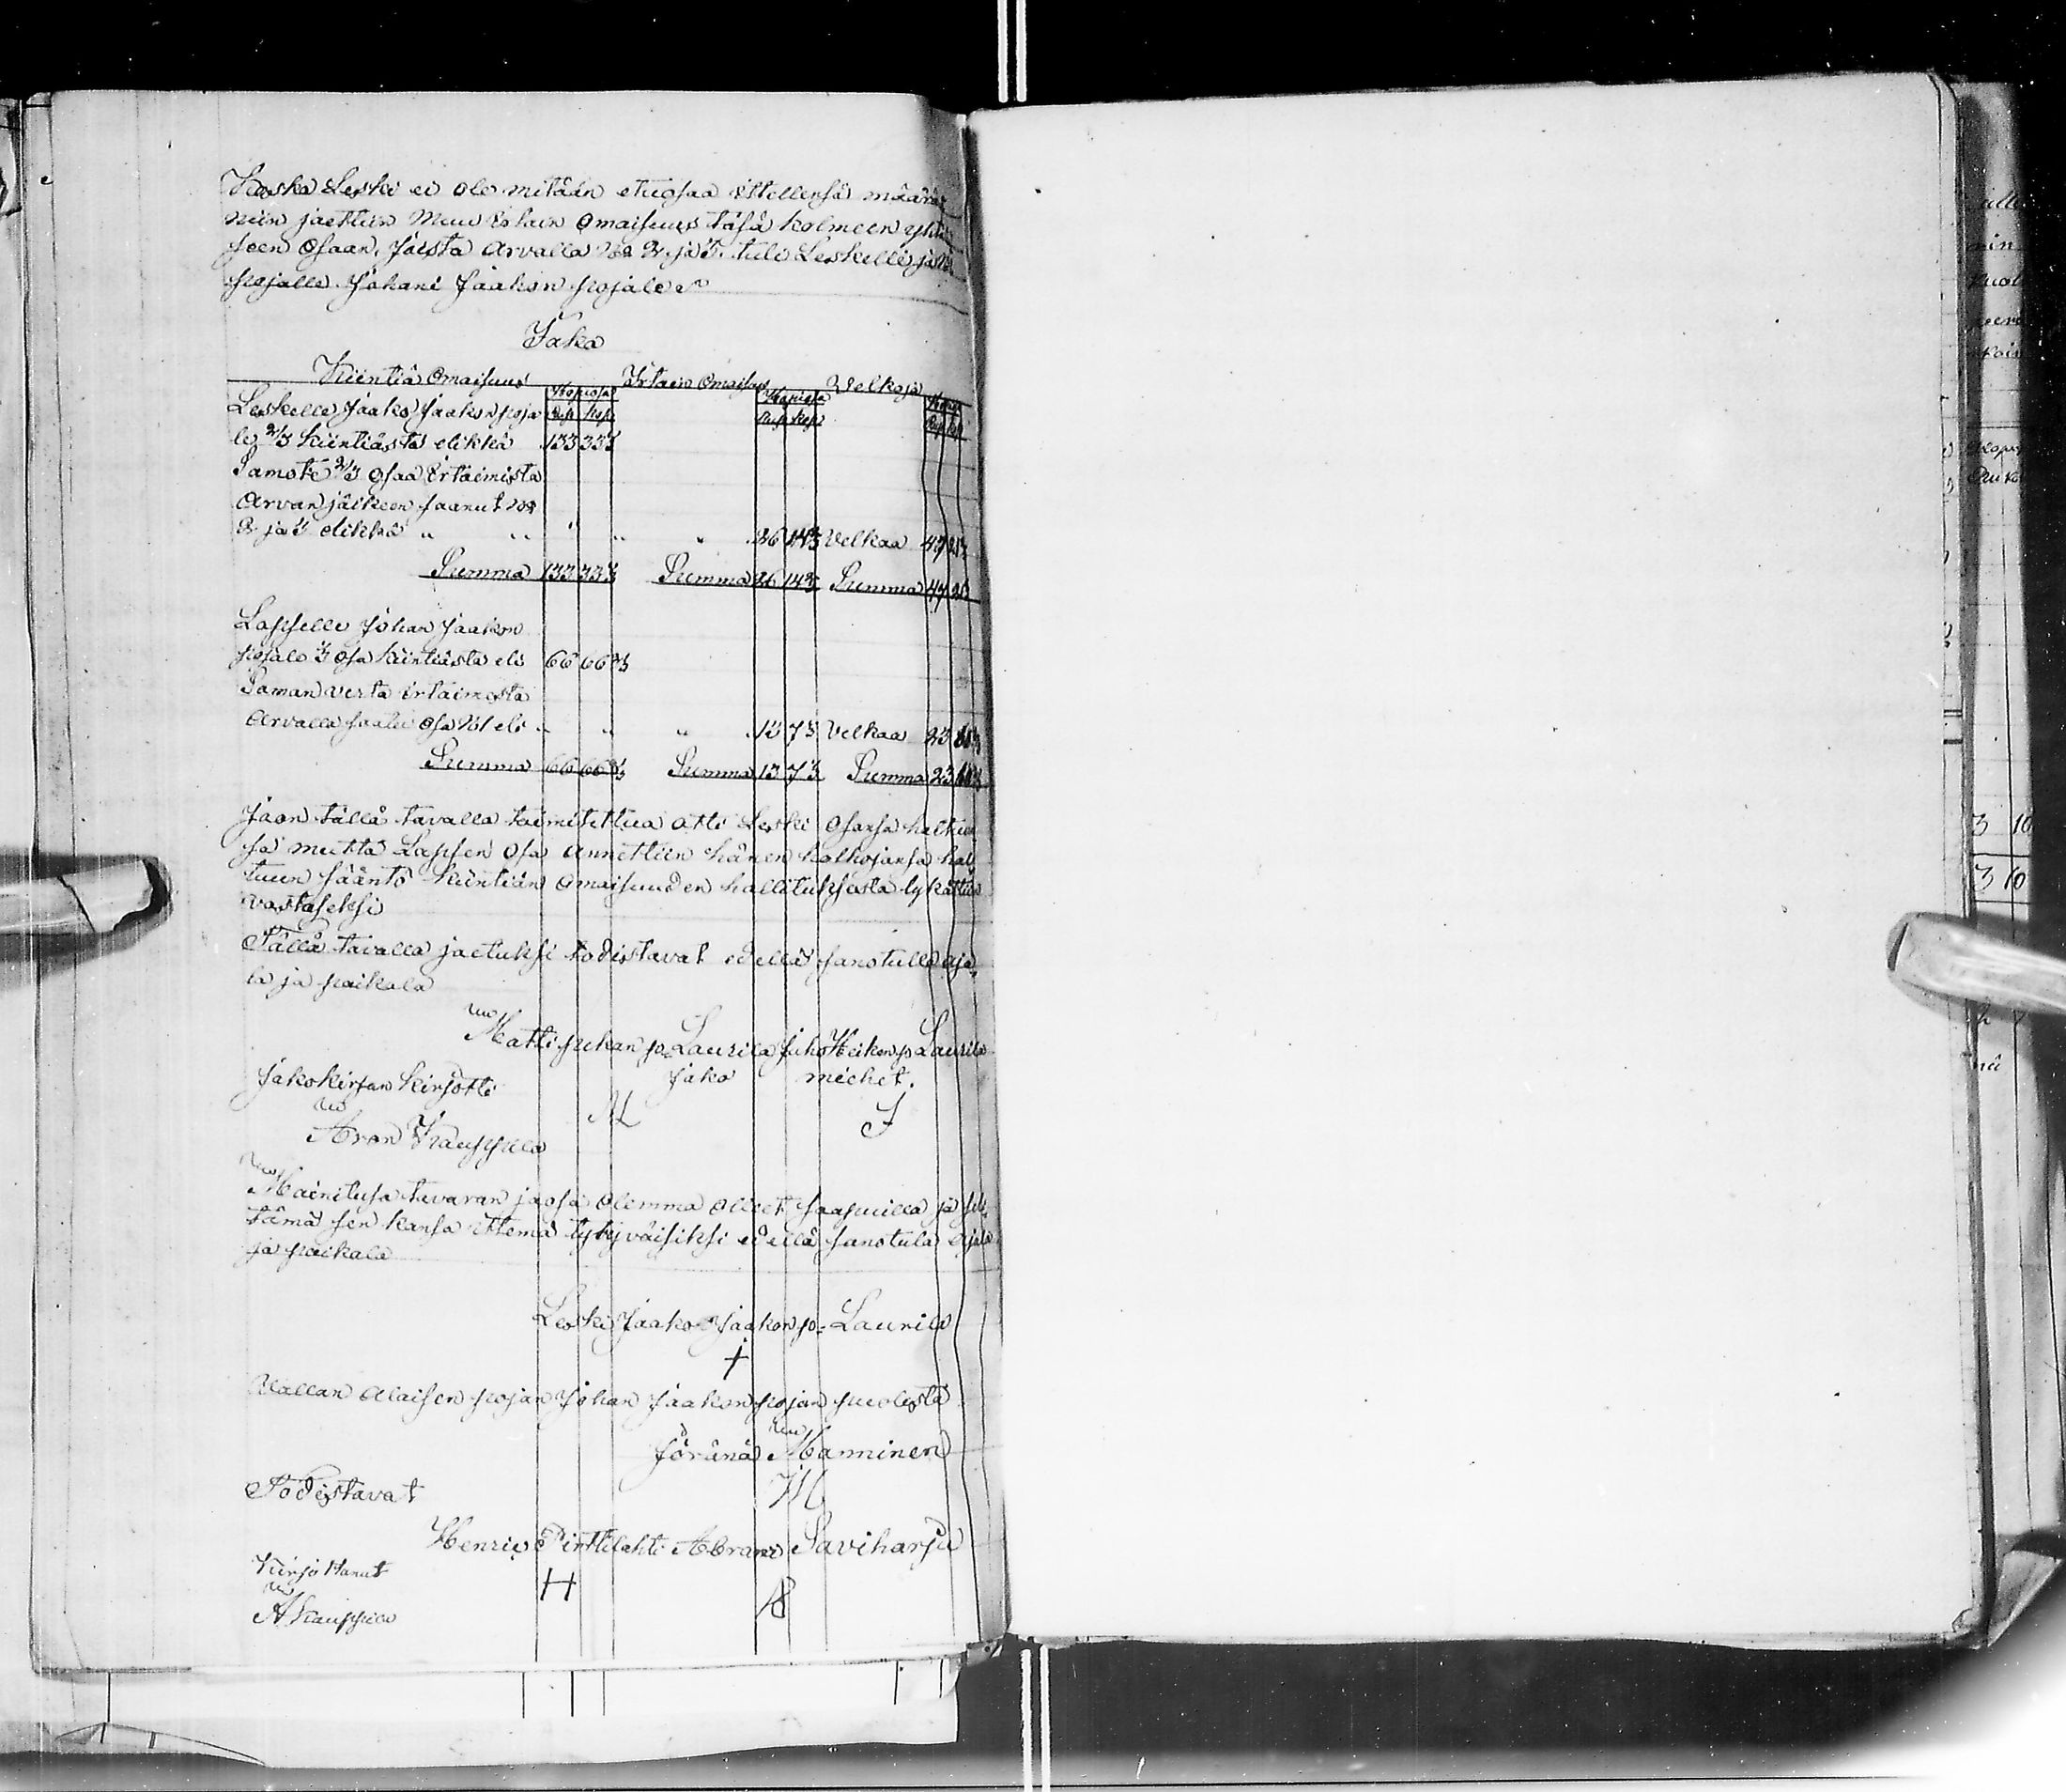 Koska Leski ei ole mitään etuosaa ittellensä määrä
niin jaettiin Muu Irtain Omaisuus täsä kolmeen yhtä
seen Osaan, Joista Arvalla No 2 ja 3. tuli Leskelle ja No
pojalle Johani Jaakon pojale
Jako
Kiintiä Omaisuus Irtain Omaisus Velkoja
Hopiosa Hopiosa
Leskelle Jaako Jaakon poja Rup Kop Rup Kop
le 2/3 Kiintiästä elikkä 133 33 1/3
Samote 2/3 Osaa Irtaimista
Arvan jälkeen saanut No
2 ja 3 elikkä " " " " " 26 14 2/3 Velkaa 47
Summa 133 33 1/3 Summa 26 14 2/3 Summa 47
Lapselle Johan Jaakon
pojale 1/3 Osa Kiintiästa eli 66 66 2/3
Saman verta irtaimesta
Arvalla saatu Osa No 1 eli " " " 13 7 1/3 Velkaa 23
Summa 66 66 2/3 Summa 13 7 1/3 Summa 23
Jaon tällä tavalla toimitettua otti Leski Osansa haltuun
sa mutta Lapsen Osa Annettiin hänen holhojansa hal
tuun sääntö kiintiän Omaisuuden hallituksesta lykättiin
vastaseksi
Tällä tavalla jaetuksi todistavat edellä sanotulla aja
la ja paikala
Matti Juhan po Laurila Juho Heikin po Laurila
Jakokirjan kirjotti Jako miehet.
ML J
Aron Kauppila
Mainitusa tavaran jaosa Olemma Olleet saapuilla ja
tämä sen kansa ittemä tytyväisiksi edellä sanotula Ajala
ja paikala
Leski Jaako Jaakon po: Laurila
+
Vallan Alaisen pojan Johan Jaakon pojan puolesta
Jöränä Manninen
Todistavat JM
Henric Pirttilahti Abram Saviharju
Kirjottanut H AS
A Kauppila
3 10
3 10